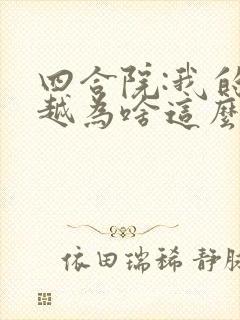 四合院:我能
越為啥這麼
依田瑞稀 静脉